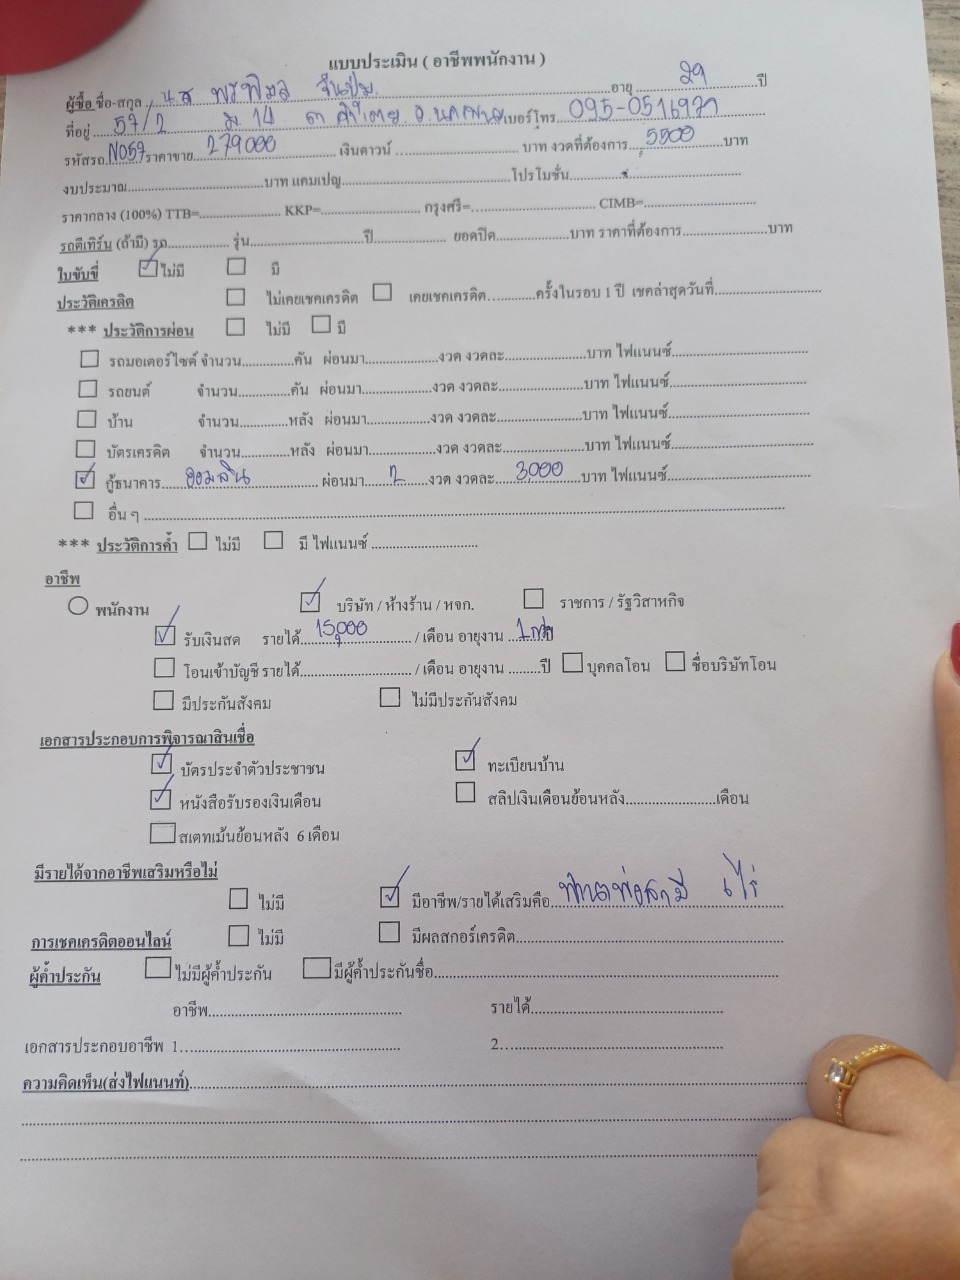 แบบประเมิน ( อาชีพพนักงาน )
ผู้ซื้อ ชื่อ-สกุล น.ส พรพิมล อายุ 29 ปี
ที่อยู่ 57/2 ม.14 ต เบอร์โทร 095-
รหัสรถ N057 ราคาขาย 279000 เงินดาวน์ บาท งวดที่ต้องการ 5500 บาท
งบประมาณ บาท แคมเปญ โปรโมชั่น
ราคากลาง (100%) TTB= KKP= กรุงศรี= CIMB=
รถตีเทิร์น (ถ้ามี) รถ รุ่น ปี ยอดปิด บาท ราคาที่ต้องการ บาท
ใบขับขี่ ไม่มี มี
ประวัติเครดิต ไม่เคยเชคเครดิต เคยเชคเครดิต ครั้งในรอบ 1 ปี เชคล่าสุดวันที่
*** ประวัติการผ่อน ไม่มี มี
รถมอเตอร์ไซค์ จำนวน คัน ผ่อนมา งวด งวดละ บาท ไฟแนนซ์
รถยนต์ จำนวน คัน ผ่อนมา งวด งวดละ บาท ไฟแนนซ์
บ้าน จำนวน หลัง ผ่อนมา งวด งวดละ บาท ไฟแนนซ์
บัตรเครดิต จำนวน หลัง ผ่อนมา งวด งวดละ บาท ไฟแนนซ์
กู้ธนาคาร ออมสิน ผ่อนมา 2 งวด งวดละ 3,000 บาท ไฟแนนซ์
อื่น ๆ
*** ประวัติการค้ำ ไม่มี มี ไฟแนนซ์
อาชีพ
พนักงาน บริษัท / ห้างร้าน / หจก. ราชการ / รัฐวิสาหกิจ
รับเงินสด รายได้ 15,000 / เดือน อายุงาน 1 ปี
โอนเข้าบัญชี รายได้ / เดือน อายุงาน ปี บุคคลโอน ชื่อบริษัทโอน
มีประกันสังคม ไม่มีประกันสังคม
เอกสารประกอบการพิจารณาสินเชื่อ
บัตรประจำตัวประชาชน ทะเบียนบ้าน
หนังสือรับรองเงินเดือน สลิปเงินเดือนย้อนหลัง เดือน
สเตทเม้นย้อนหลัง 6 เดือน
มีรายได้จากอาชีพเสริมหรือไม่
ไม่มี มีอาชีพ/รายได้เสริมคือ
การเชคเครดิตออนไลน์ ไม่มี มีผลสกอร์เครดิต
ผู้ค้ำประกัน ไม่มีผู้ค้ำประกัน มีผู้ค้ำประกันชื่อ
อาชีพ รายได้
เอกสารประกอบอาชีพ 1 2
ความคิดเห็น(ส่งไฟแนนท์)